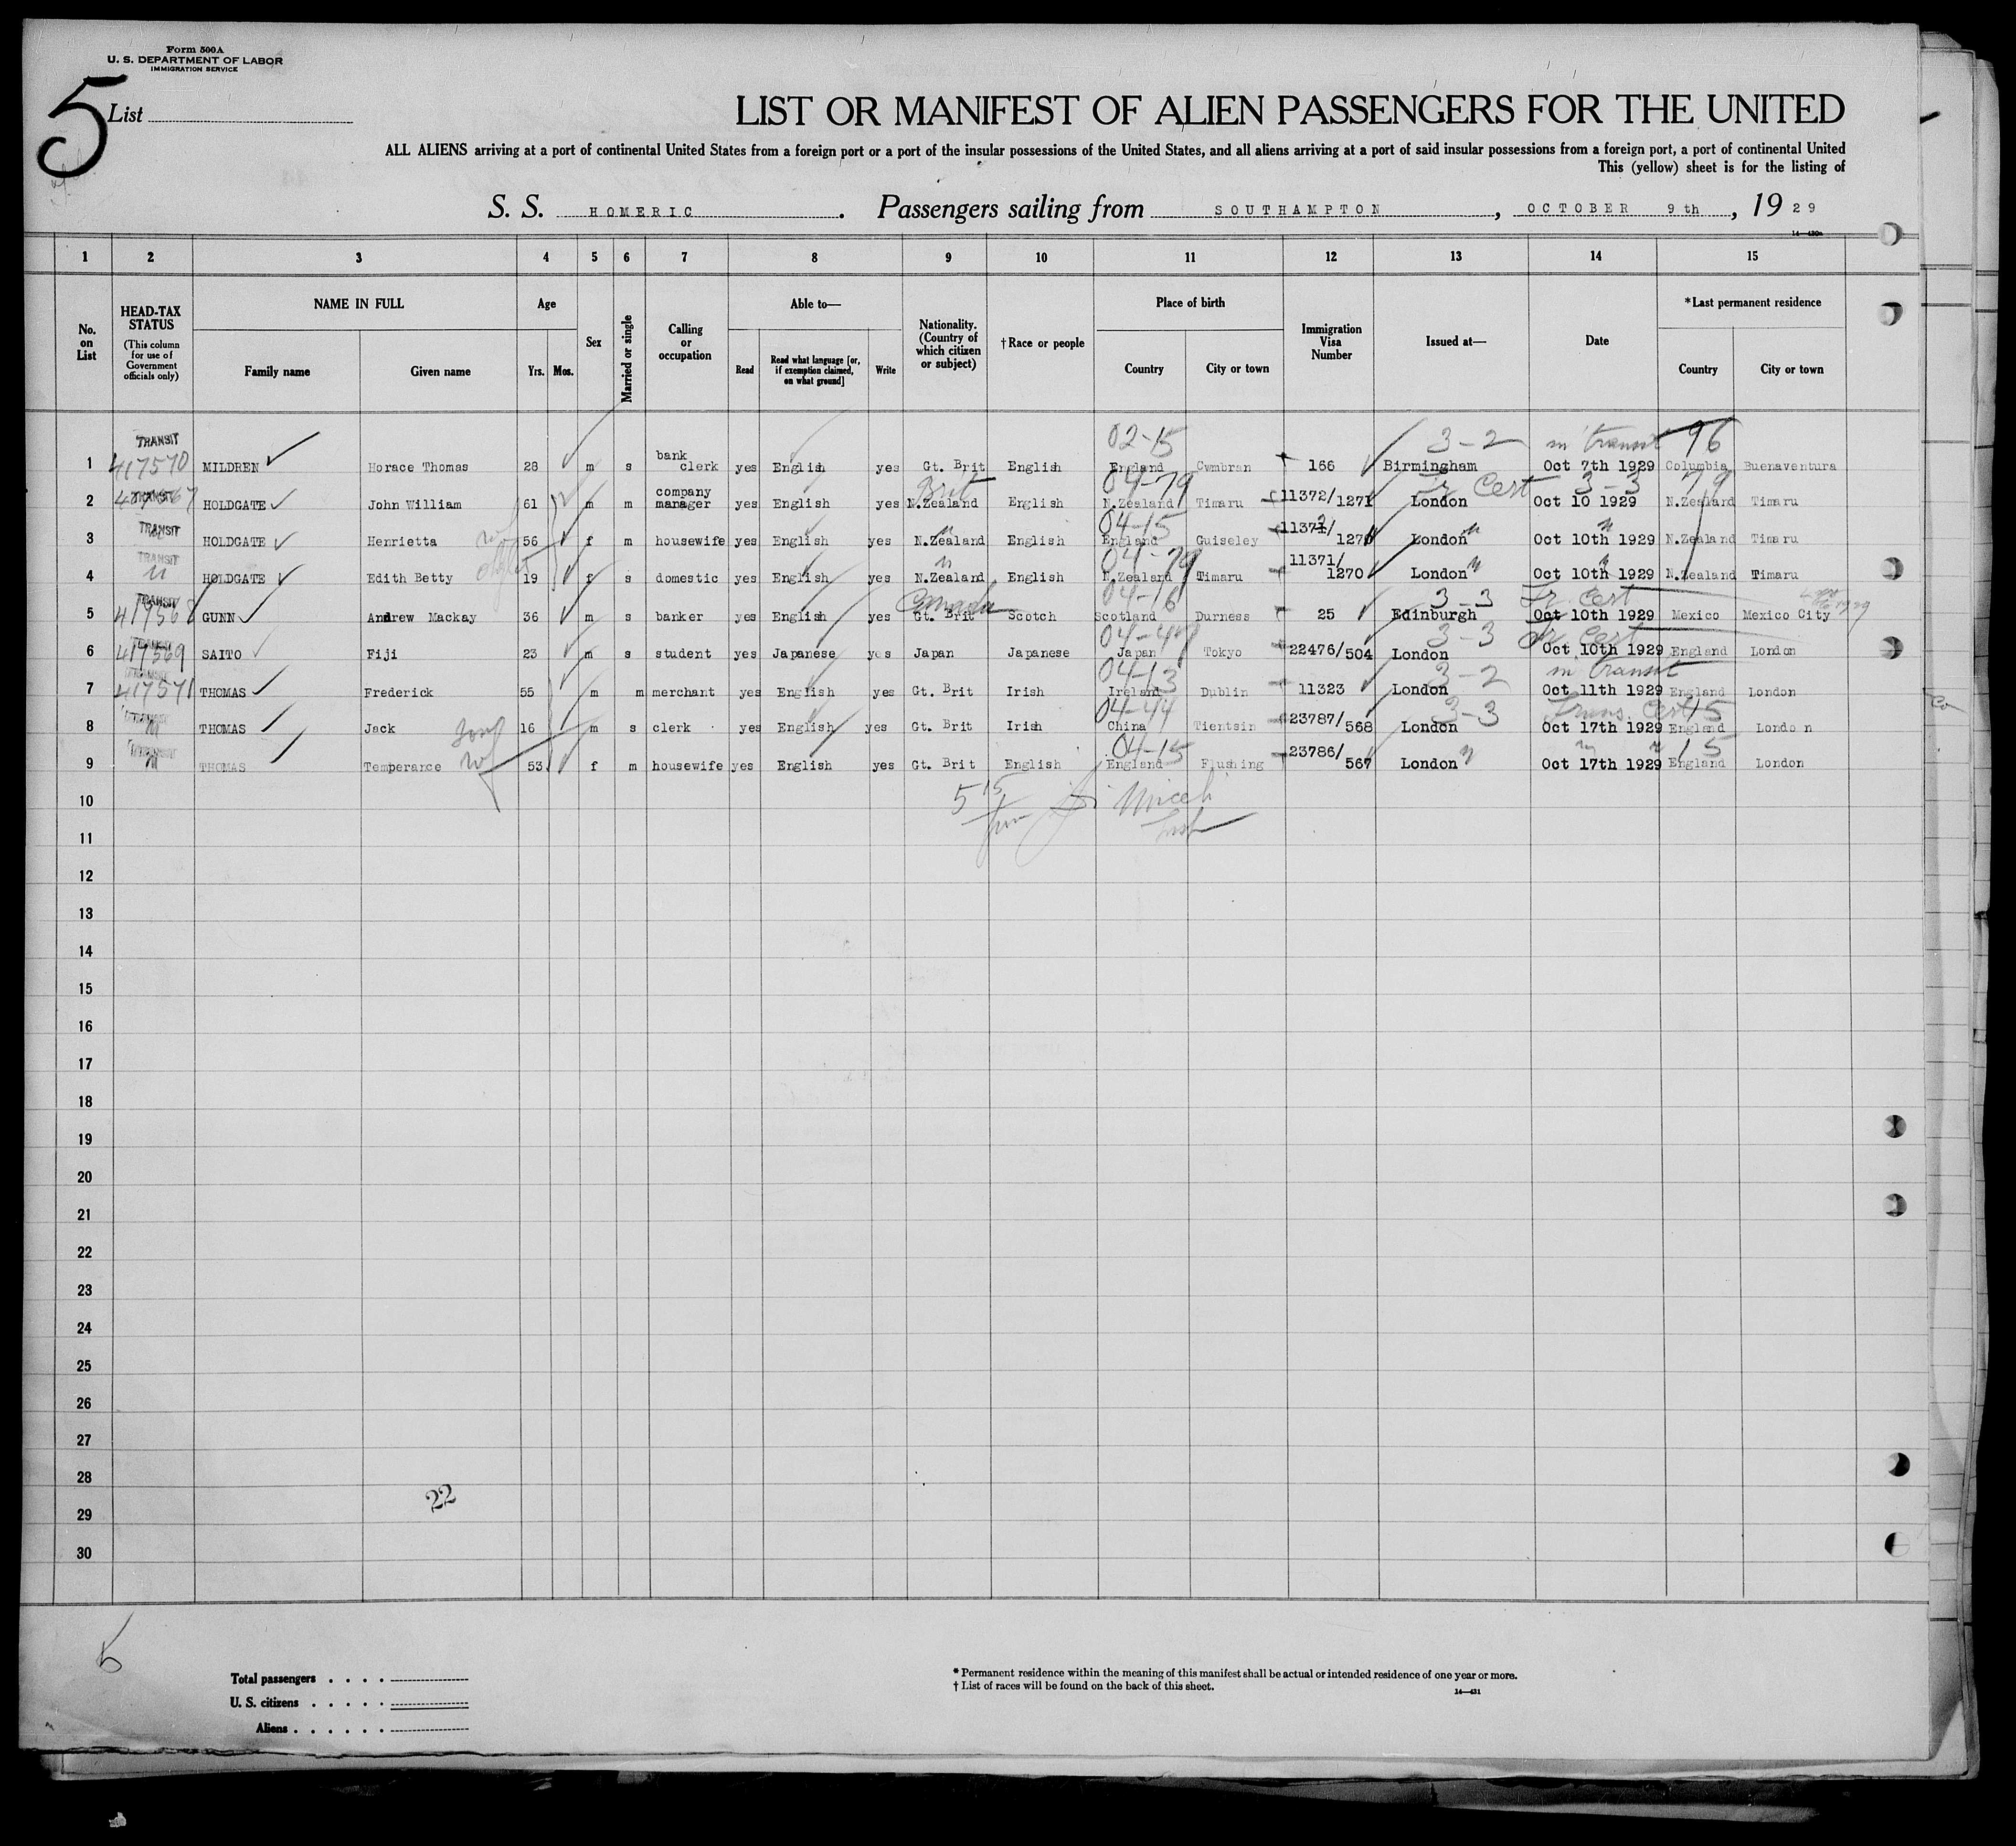 Form 500A
U. S. DEPARTMENT OF LABOR
IMMIGRATION SERVICE
5 List
LIST OR MANIFEST OF ALIEN PASSENGERS FOR THE UNITED
ALL ALIENS arriving at a port of continental United States from a foreign port or a port of the insular possessions of the United States, and all aliens arriving at a port of said insular possessions from a foreign port, a port of continental United
This (yellow) sheet is for the listing of
S. S. HOMERIC. Passengers sailing from SOUTHAMPTON, OCTOBER 9 th, 19 29
14—430a
1 2 3 4 5 6 7 8 9 10 11 12 13 14 15
No. on List
HEAD-TAX STATUS
(This column for use of Government officials only)
NAME IN FULL
Family name Given name
Age
Yrs. Mos.
Sex
Married or single
Calling or occupation
Able to—
Read Read what language [or, if exemption claimed, on what ground] Write
Nationality. (Country of which citizen or subject)
† Race or people
Place of birth
Country City or town
Immigration Visa Number
Issued at—
Date
*Last permanent residence
Country City or town
TRANSIT 02-15 3-2 in transit 96
1 417570 MILDREN Horace Thomas 28 m s bank clerk yes English yes Gt. Brit English England Cwmbran 166 Birmingham Oct 7th 1929 Columbia Buenaventura
TRANSIT Brit 04-79 Tr Cert 3-3 79
2 417567 HOLDGATE John William 61 m m company manager yes English yes N.Zealand English N.Zealand Timaru 11372/1271 London Oct 10 1929 N.Zealand Timaru
TRANSIT wf " 04-15 " "
3 HOLDGATE Henrietta 56 f m housewife yes English yes N.Zealand English England Guiseley 11371/1270 London Oct 10th 1929 N.Zealand Timaru
TRANSIT " 04-79 " "
4 HOLDGATE Edith Betty 19 f s domestic yes English yes N.Zealand English N.Zealand Timaru 11371/1270 London Oct 10th 1929 N.Zealand Timaru
TRANSIT Canada 04-16 3-3 Tr. Cert
5 417568 GUNN Andrew Mackay 36 m s banker yes English yes Gt. Brit Scotch Scotland Durness 25 Edinburgh Oct 10th 1929 Mexico Mexico City
TRANSIT 04-47 3-3 Tr Cert
6 417569 SAITO Fiji 23 m s student yes Japanese yes Japan Japanese Japan Tokyo 22476/504 London Oct 10th 1929 England London
TRANSIT 04-13 3-2 in transit
7 417571 THOMAS Frederick 55 m m merchant yes English yes Gt. Brit Irish Ireland Dublin 11323 London Oct 11th 1929 England London
TRANSIT 04-44 3-3 Trans. Cert 15
8 THOMAS Jack son 16 m s clerk yes English yes Gt. Brit Irish China Tientsin 23787/568 London Oct 17th 1929 England London
TRANSIT 04-15 " " 15
9 THOMAS Temperance wf 53 f m housewife yes English yes Gt. Brit English England Flushing 23786/567 London Oct 17th 1929 England London
10
11
12
13
14
15
16
17
18
19
20
21
22
23
24
25
26
27
28
22
29
30
5
Total passengers
U. S. citizens
Aliens
* Permanent residence within the meaning of this manifest shall be actual or intended residence of one year or more.
† List of races will be found on the back of this sheet.
14—431